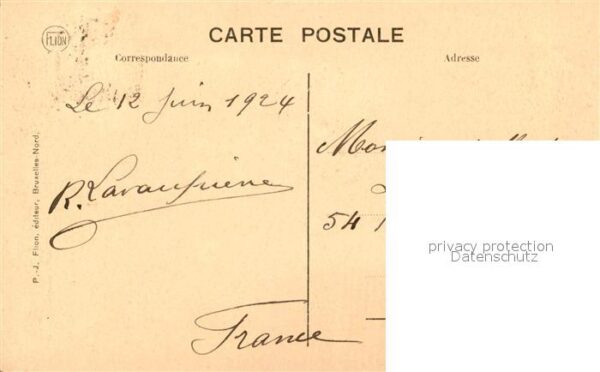 FLION
CARTE POSTALE
Correspondance
Adresse
Le 12 Juin 1924
54
France
P.-J. Flion, éditeur, Bruxelles-Nord.
privacy protection
Datenschutz